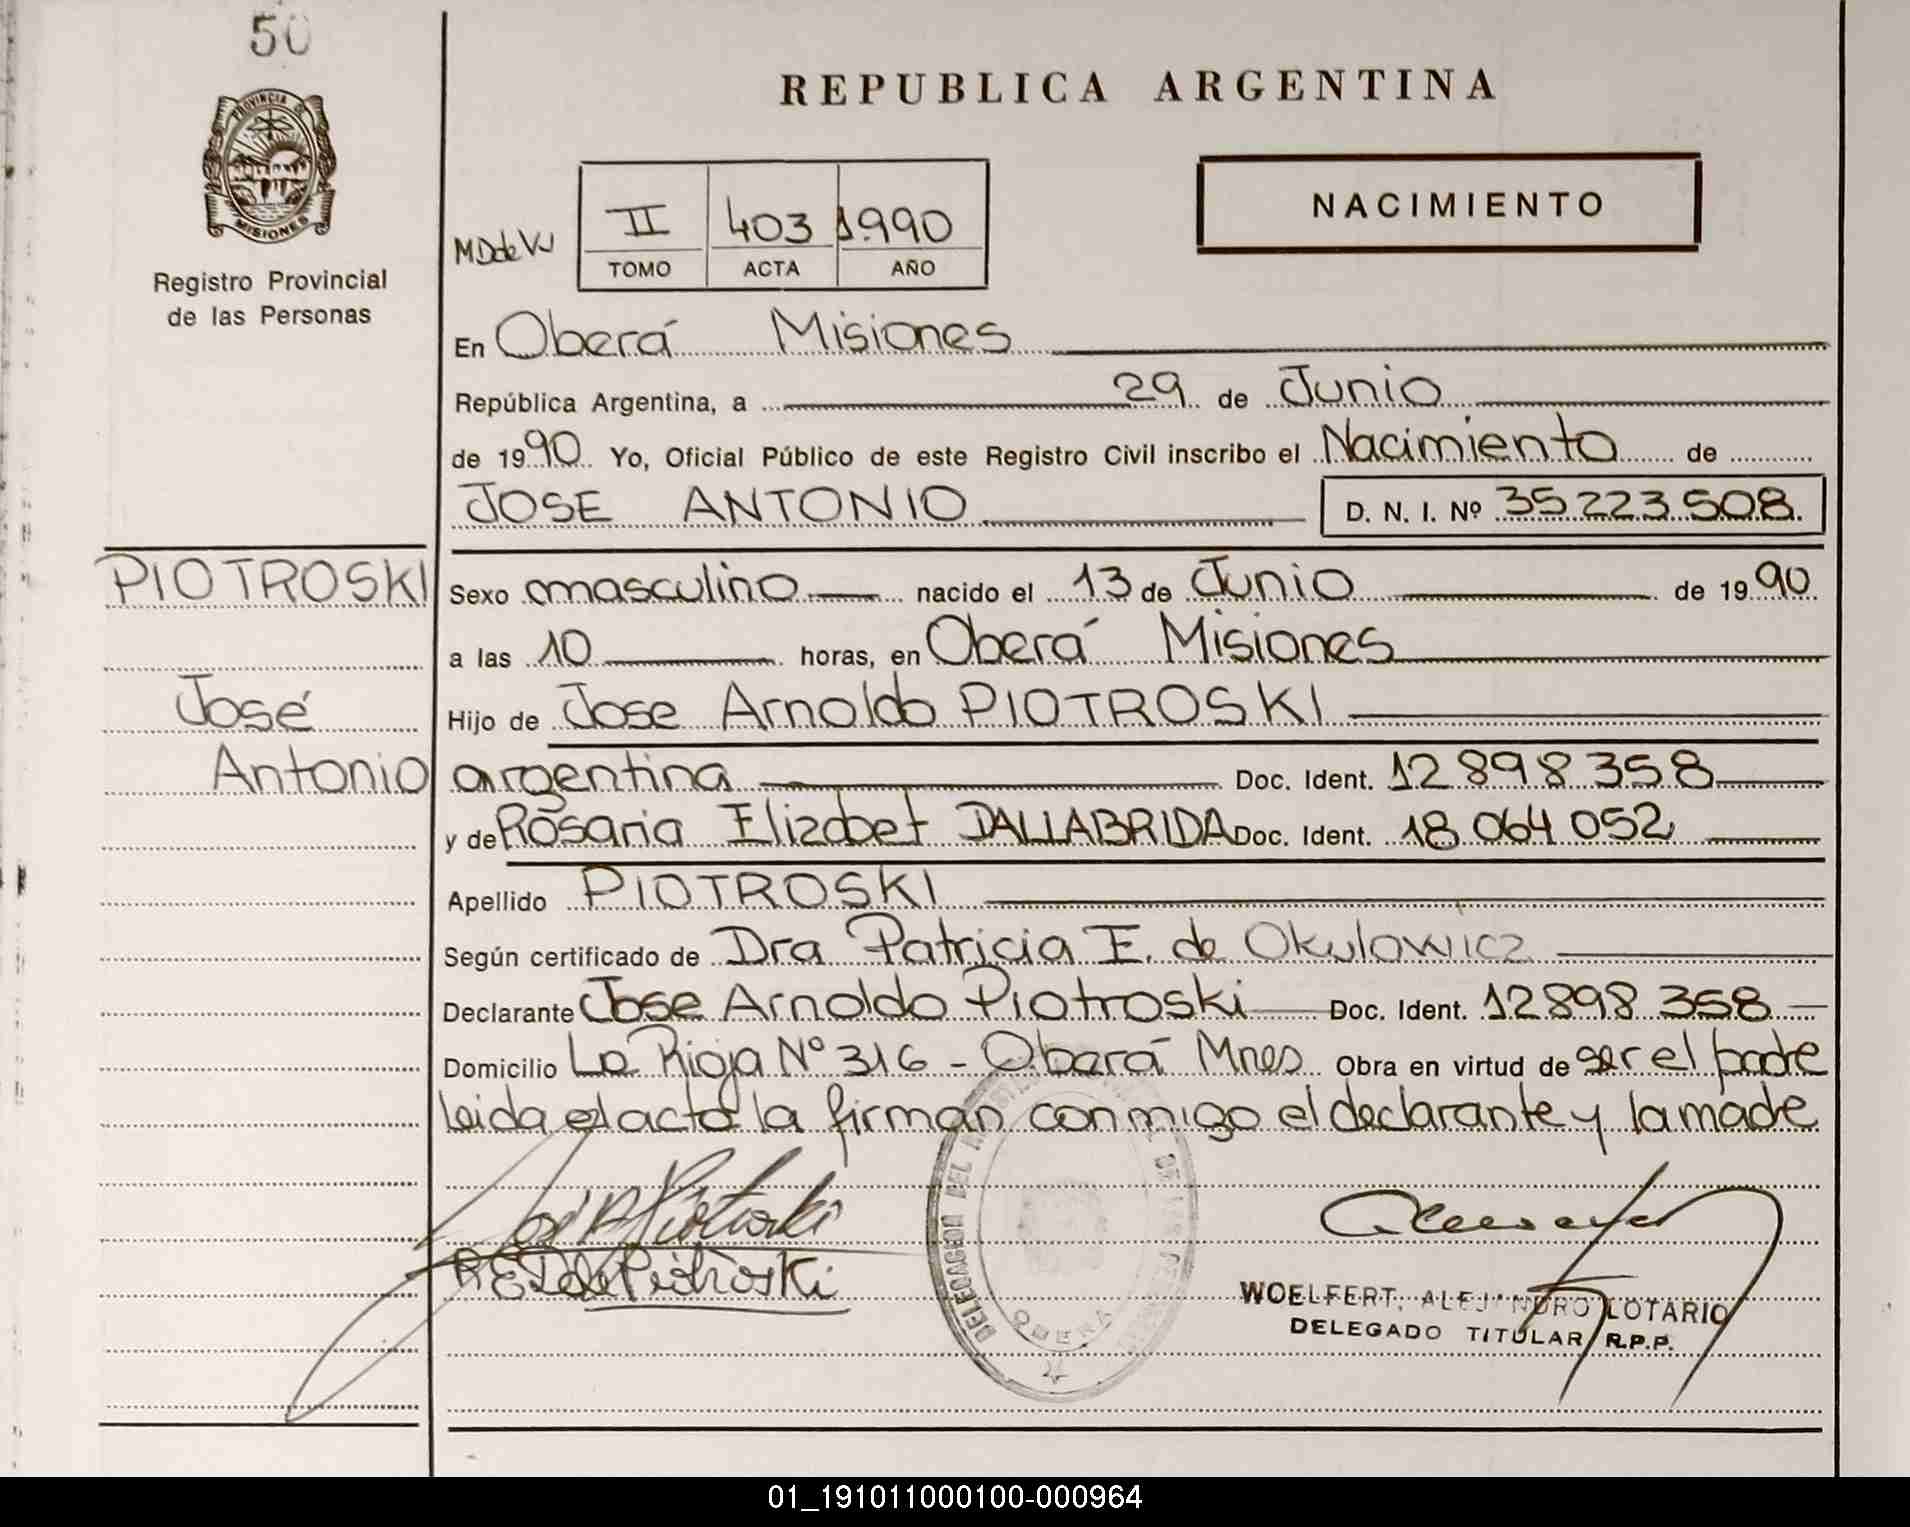 50
PROVINCIA DE
MISIONES
Registro Provincial
de las Personas
REPUBLICA ARGENTINA
NACIMIENTO
MDdeVJ
II 403 1990
TOMO ACTA AÑO
En Oberá Misiones
República Argentina, a 29 de Junio
de 1990 Yo, Oficial Público de este Registro Civil inscribo el Nacimiento de
JOSE ANTONIO D. N. I. Nº 35.223.508
PIOTROSKI
José
Antonio
Sexo masculino nacido el 13 de Junio de 1990
a las 10 horas, en Oberá Misiones
Hijo de Jose Arnoldo PIOTROSKI
argentina Doc. Ident. 12.898.358
y de Rosaria Elizabet DALLABRIDA Doc. Ident. 18.064.052
Apellido PIOTROSKI
Según certificado de Dra Patricia E. de Okulowicz
Declarante Jose Arnoldo Piotroski Doc. Ident. 12898.358
Domicilio La Rioja Nº 316 - Oberá Mnes Obra en virtud de ser el padre
leida el acta la firman conmigo el declarante y la madre
José A Piotroski
R E D de Piotroski
OBERA
WOELFERT, ALEJANDRO LOTARIO
DELEGADO TITULAR R.P.P.
01_191011000100-000964